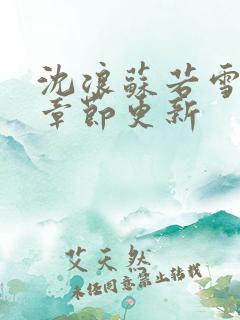 沈浪蘇若雪
章節更新
艾天然
未经同意禁止转载